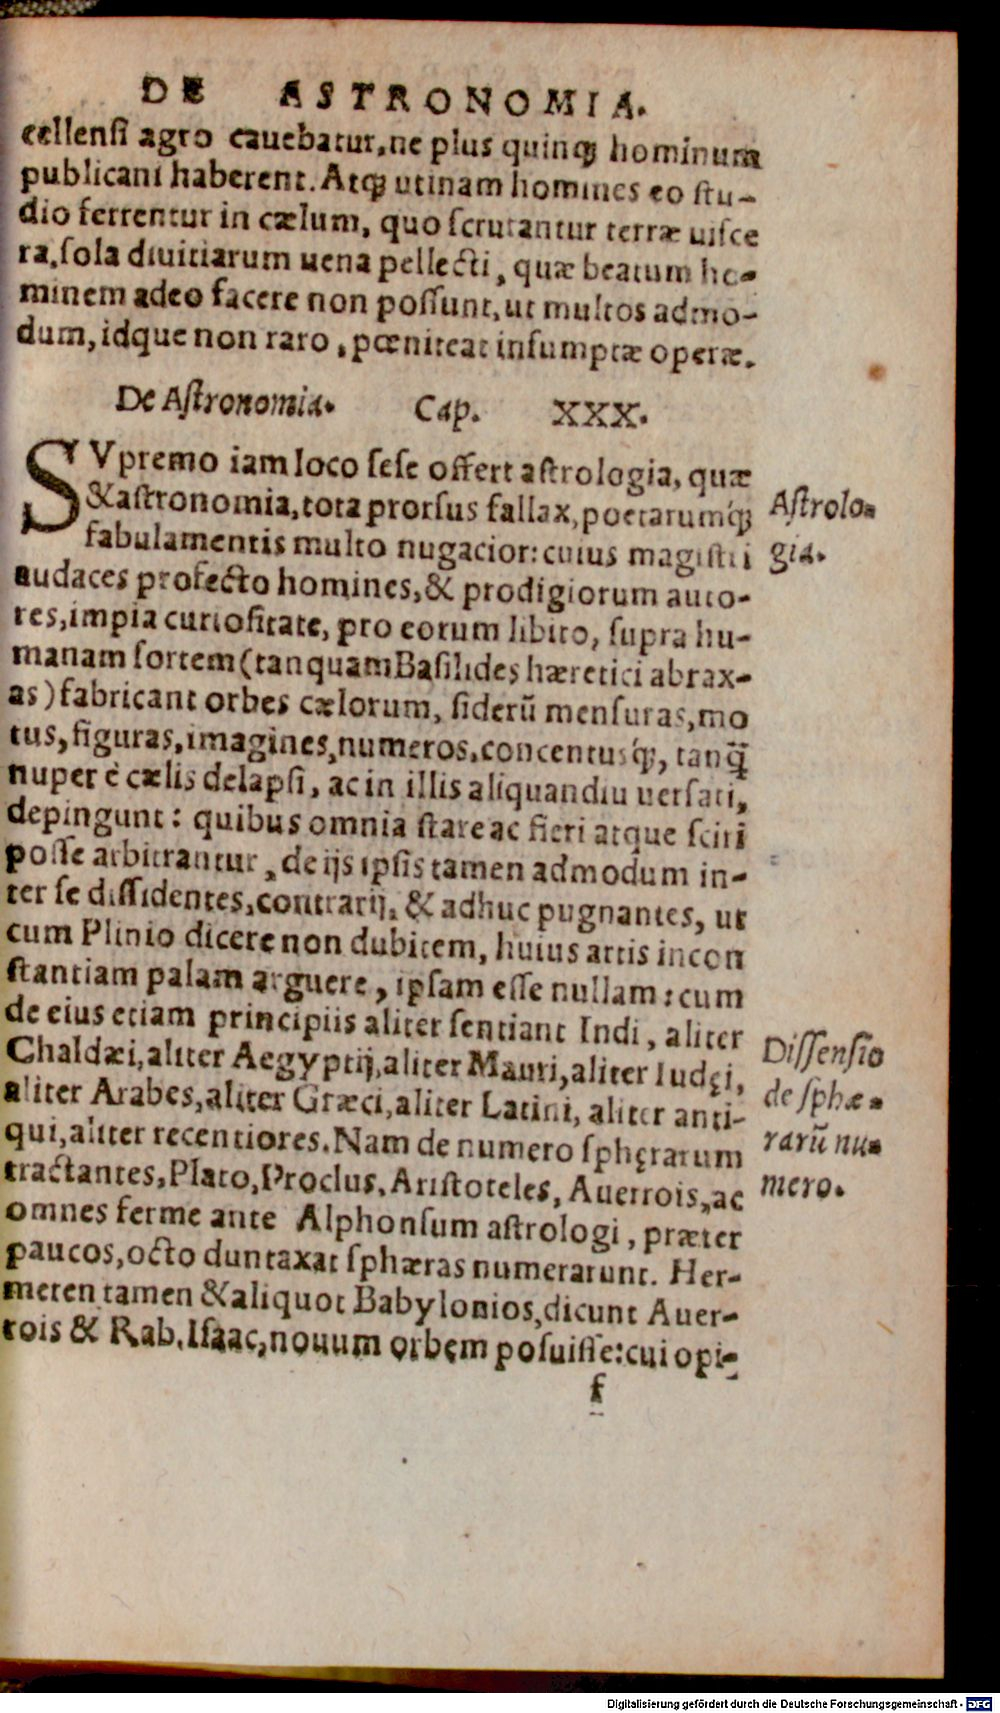 DE ASTRONOMIA.
cellensi agro cauebatur, ne plus quinqꝫ hominum
publicani haberent. Atqꝫ utinam homines eo stu-
dio ferrentur in cælum, quo scrutantur terræ uisce
ra, sola diuitiarum uena pellecti, quæ beatum ho-
minem adeo facere non possunt, ut multos admo-
dum, idque non raro, pœniteat insumptæ operæ.
De Astronomia. Cap. XXX.
SVpremo iam loco sese offert astrologia, quæ
& astronomia, tota prorsus fallax, poetarumq́ꝫ
Astrolo-
fabulamentis multo nugacior: cuius magistri
gia.
audaces profecto homines, & prodigiorum auto-
res, impia curiositate, pro eorum libito, supra hu-
manam sortem (tanquam Basilides hæretici abrax-
as) fabricant orbes cælorum, siderũ mensuras, mo
tus, figuras, imagines, numeros, concentusq́ꝫ, tanq̃
nuper è cælis delapsi, ac in illis aliquandiu uersati,
depingunt: quibus omnia stare ac fieri atque sciri
posse arbitrantur, de ijs ipsis tamen admodum in-
ter se dissidentes, contrarij, & adhuc pugnantes, ut
cum Plinio dicere non dubitem, huius artis incon
stantiam palam arguere, ipsam esse nullam: cum
de eius etiam principiis aliter sentiant Indi, aliter
Chaldæi, aliter Aegyptij, aliter Mauri, aliter Iudęi,
Dissensio
aliter Arabes, aliter Græci, aliter Latini, aliter anti-
de sphæ-
qui, aliter recentiores. Nam de numero sphęrarum
rarũ nu-
tractantes, Plato, Proclus, Aristoteles, Auerrois, ac
mero.
omnes ferme ante Alphonsum astrologi, præter
paucos, octo duntaxat sphæras numerarunt. Her-
metem tamen & aliquot Babylonios, dicunt Auer-
rois & Rab. Isaac, nouum orbem posuisse: cui opi-
f
Digitalisierung gefördert durch die Deutsche Forschungsgemeinschaft - DFG